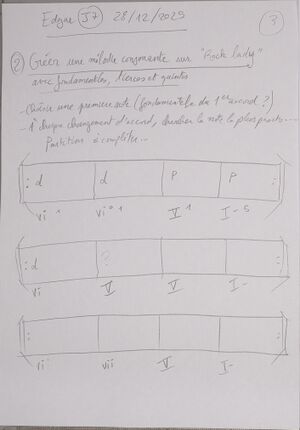 Edgar J7 28/12/2025 3
2 Créer une mélodie consonante sur "Rock lady"
avec fondamentales, tierces et quintes
- Choisir une première note (fondamentale du 1er accord ?)
- A chaque changement d'accord, chercher la note la plus proche...
Partition à compléter...
: d d P P :
vi 1 vi° 1 V 1 I - 5
: d ? :
vi V V I -
: :
vi vii V I -